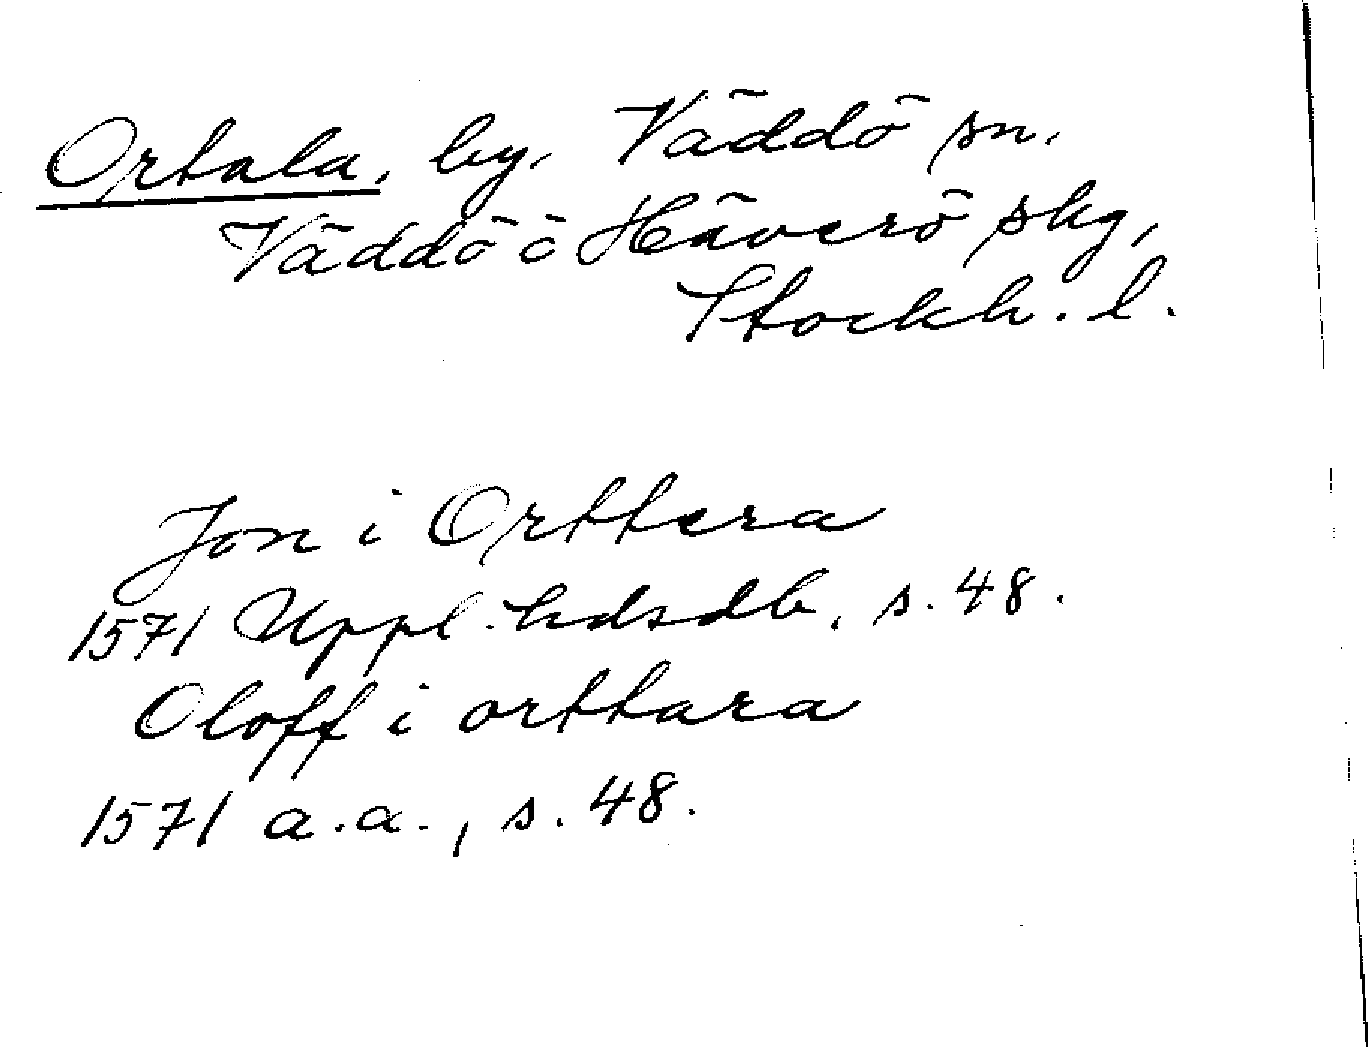 Ortala, by, Väddö sn.
Väddö o Häverö skg,
Stockh. l.
Jon i Orttera
1571 Uppl. hdsdb, s. 48.
Oloff i orttara
1571 a.a., s. 48.